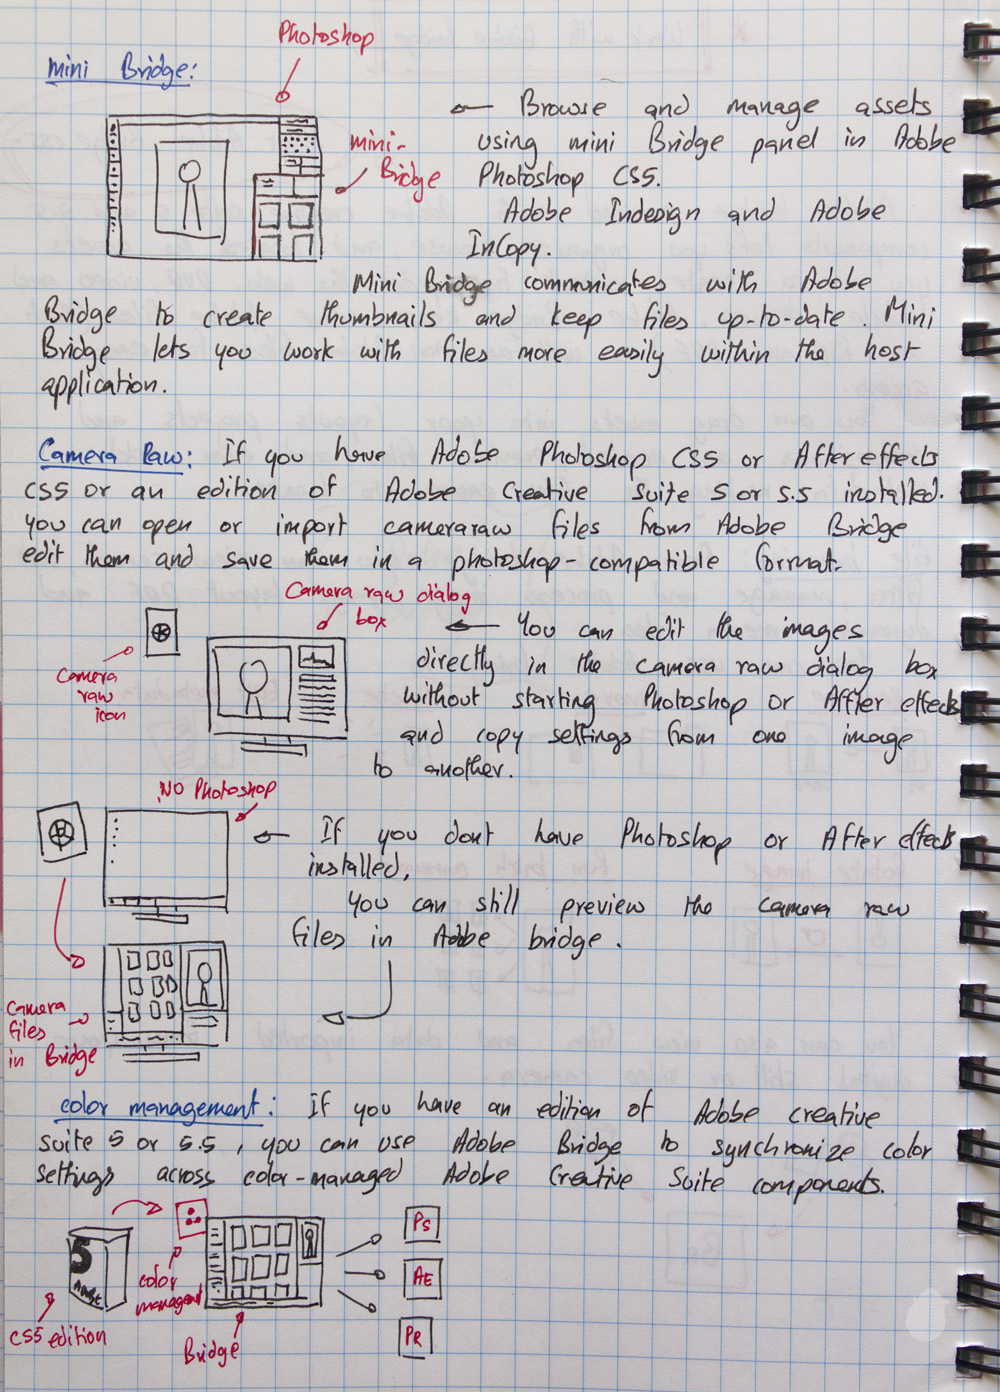 Photoshop
Mini Bridge:
mini-
Bridge
← Browse and manage assets
using mini Bridge panel in Adobe
Photoshop CS5.
Adobe Indesign and Adobe
InCopy.
Mini Bridge communicates with Adobe
Bridge to create thumbnails and keep files up-to-date. Mini
Bridge lets you work with files more easily within the host
application.
Camera Raw: If you have Adobe Photoshop CS5 or After effects
CS5 or an edition of Adobe Creative Suite 5 or 5.5 installed.
you can open or import cameraraw files from Adobe Bridge
edit them and save them in a photoshop-compatible format.
Camera raw dialog
box
Camera
raw
icon
← You can edit the images
directly in the camera raw dialog box
without starting Photoshop or After effects
and copy settings from one image
to another.
NO Photoshop
← If you dont have Photoshop or After effects
installed,
you can still preview the camera raw
files in Adobe bridge.
Camera
files
in Bridge
color management: If you have an edition of Adobe creative
suite 5 or 5.5, you can use Adobe Bridge to synchronize color
settings across color-managed Adobe Creative Suite components.
5
Adobe
CS5 edition
color
managemet
Bridge
PS
AE
PR